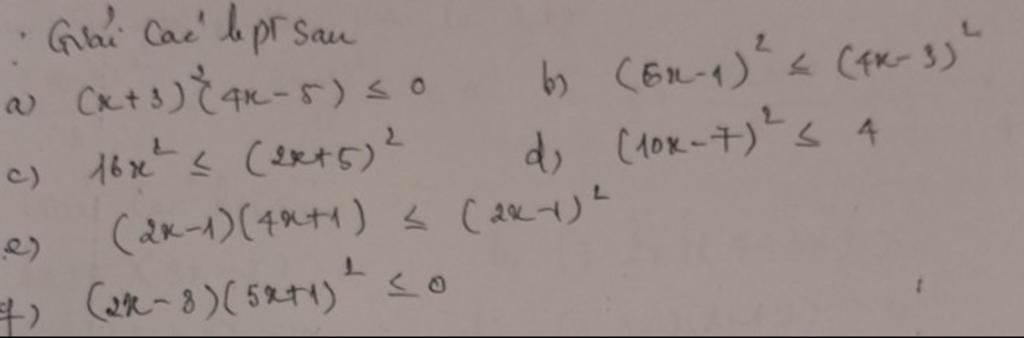 Giải các bpt sau
a) (x+3)²(4x-5) ≤ 0 b) (5x-1)² ≤ (4x-3)²
c) 16x² ≤ (2x+5)² d) (10x-7)² ≤ 4
e) (2x-1)(4x+1) ≤ (2x-1)²
f) (2x-3)(5x+1)² ≤ 0